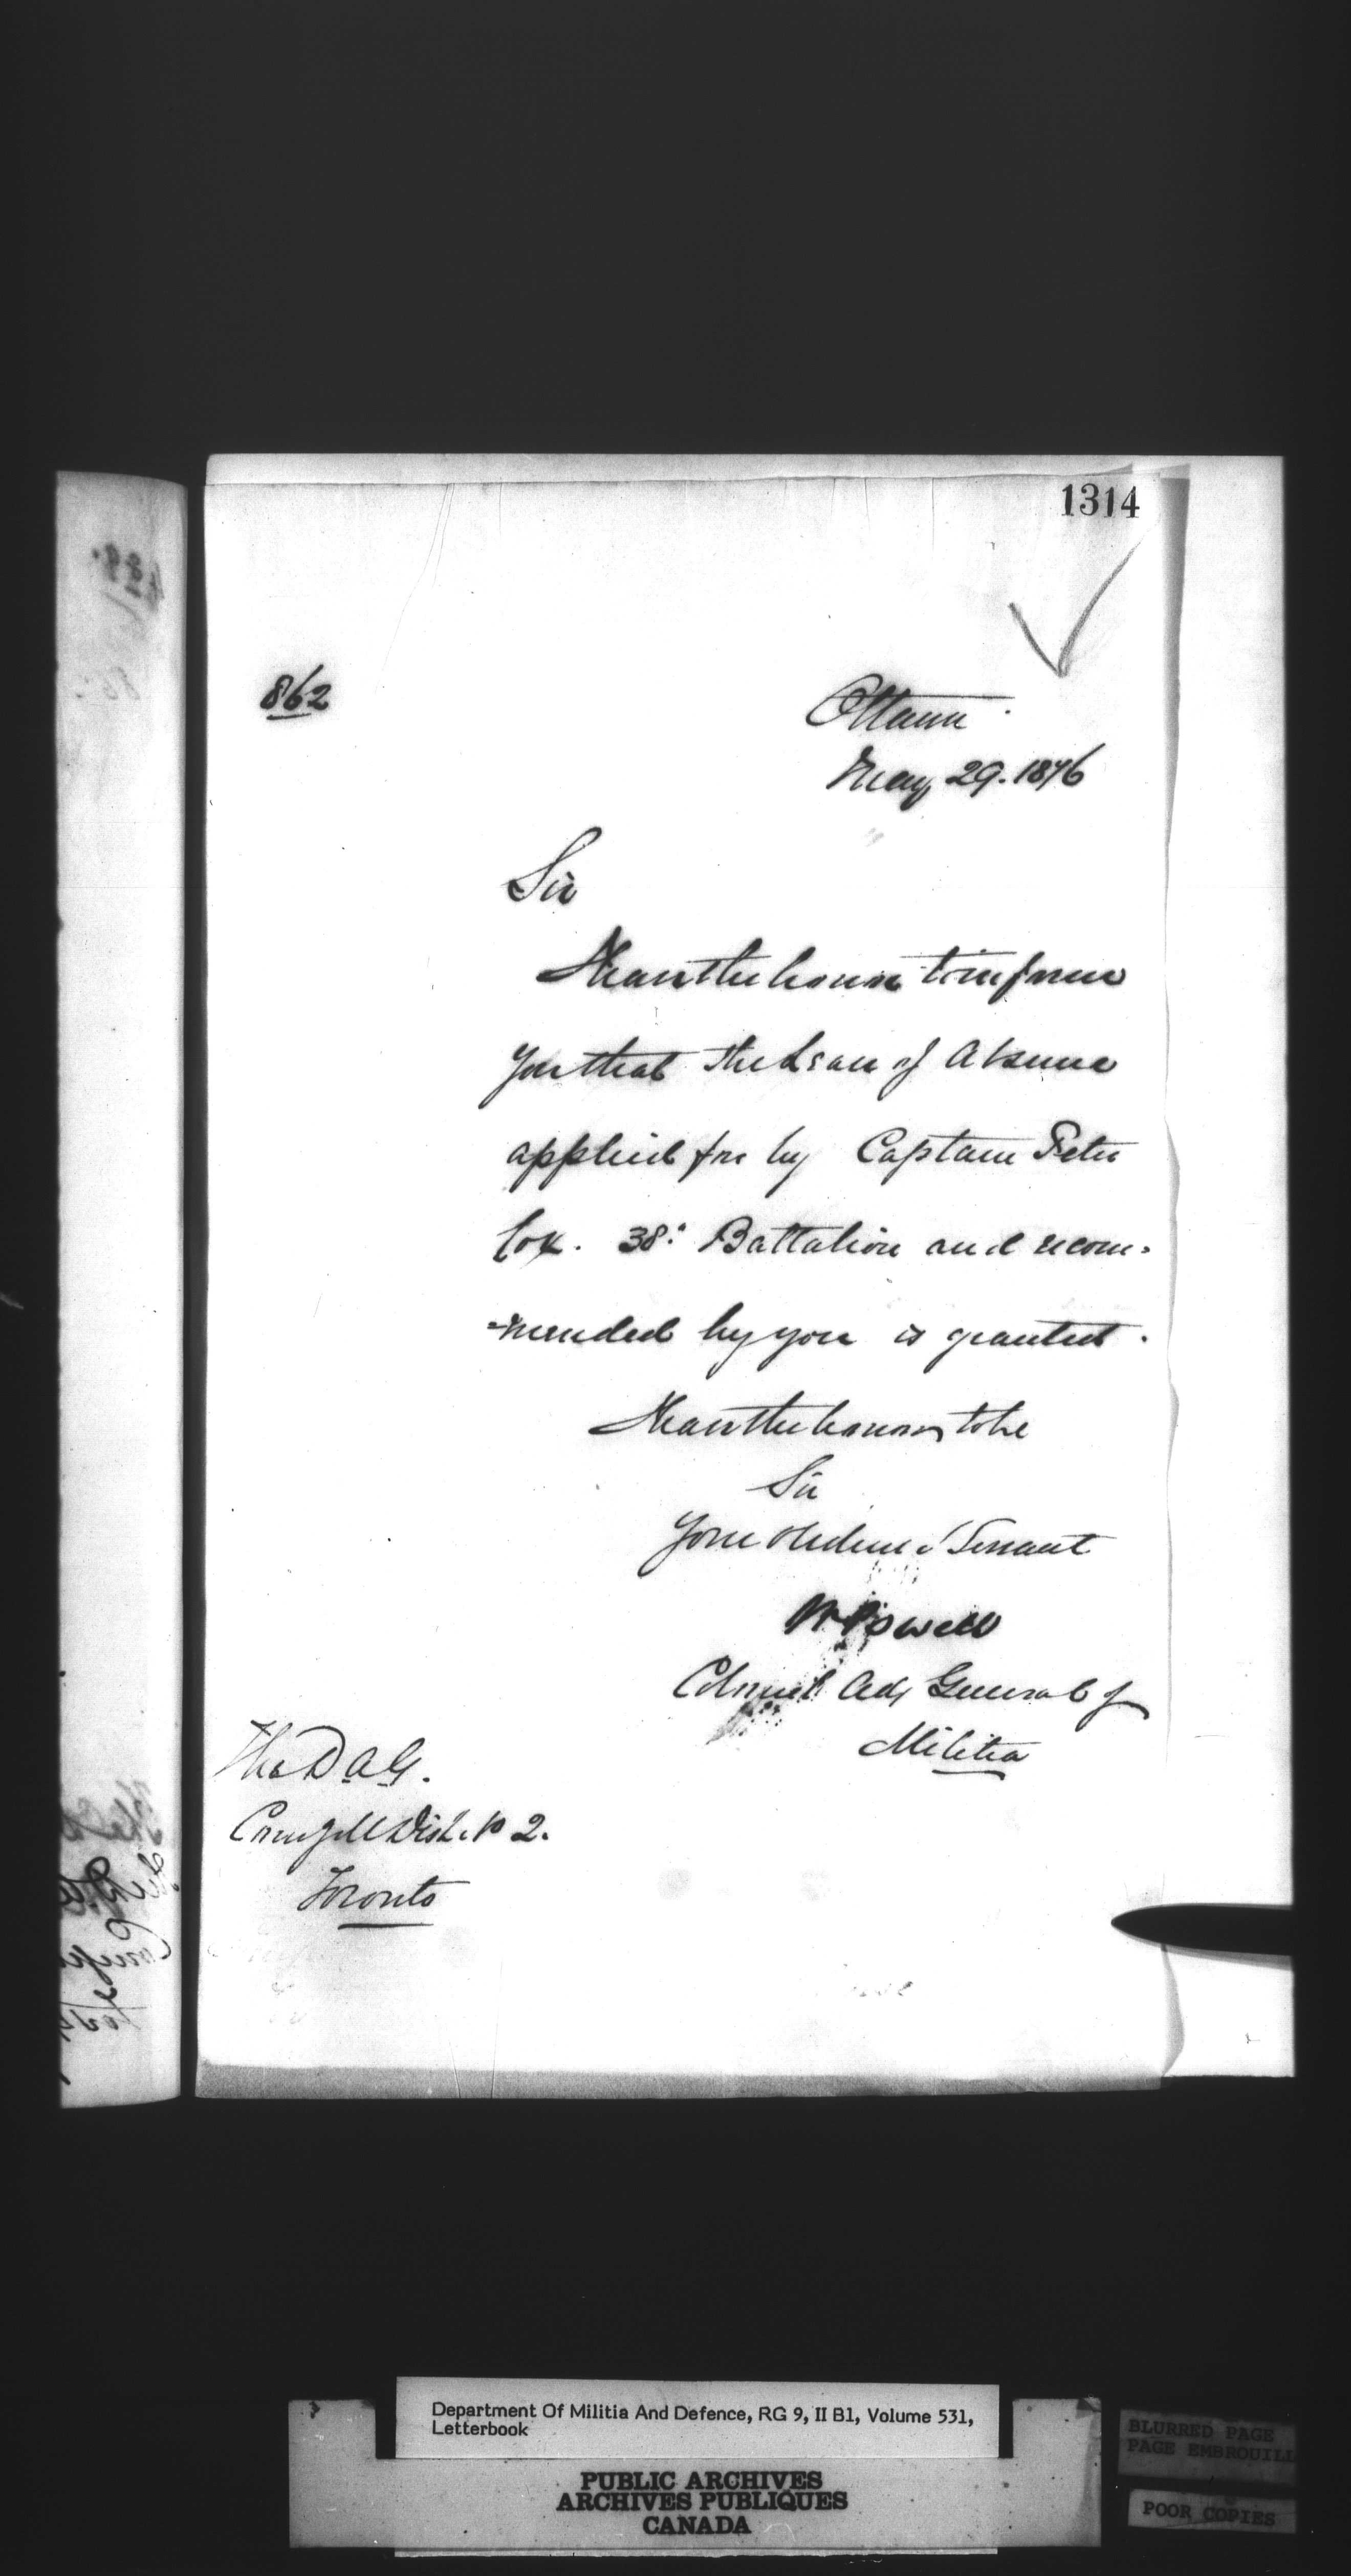 1314
862
Ottawa
May 29. 1876
Sir
I have the honor to inform
you that the Leave of Absence
applied for by Captain Peter
Cox. 38th Battalion and recom=
=mended by you is granted.
I have the honor to be
Sir
Your obedient Servant
W Powell
Colonel Adj General of
Militia
The D.A.G.
Comg Mil Dist. No 2.
Toronto
Department Of Militia And Defence, RG 9, II B1, Volume 531,
Letterbook
PUBLIC ARCHIVES
ARCHIVES PUBLIQUES
CANADA
BLURRED PAGE
PAGE EMBROUILL
POOR COPIES